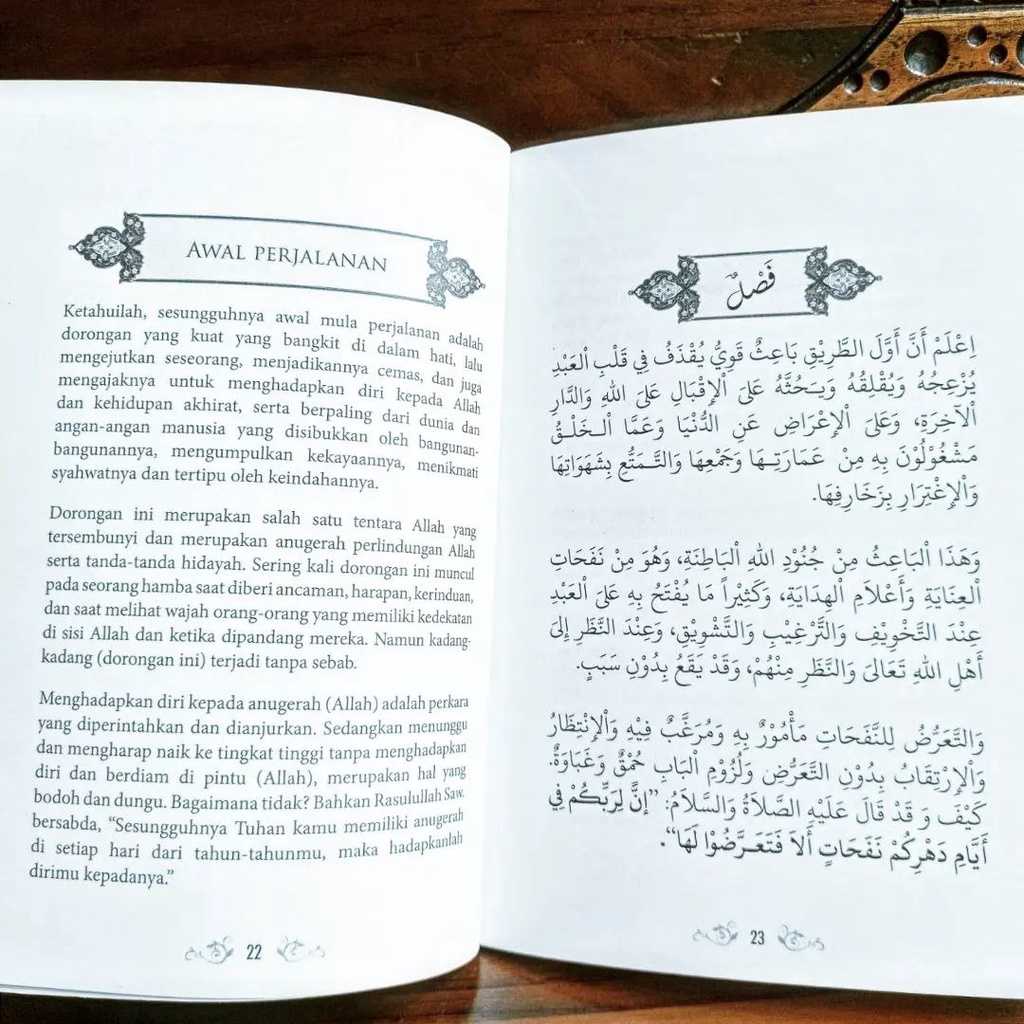 AWAL PERJALANAN
Ketahuilah, sesungguhnya awal mula perjalanan adalah
dorongan yang kuat yang bangkit di dalam hati, lalu
mengejutkan seseorang, menjadikannya cemas, dan juga
mengajaknya untuk menghadapkan diri kepada Allah
dan kehidupan akhirat, serta berpaling dari dunia dan
angan-angan manusia yang disibukkan oleh bangunan-
bangunannya, mengumpulkan kekayaannya, menikmati
syahwatnya dan tertipu oleh keindahannya.
Dorongan ini merupakan salah satu tentara Allah yang
tersembunyi dan merupakan anugerah perlindungan Allah
serta tanda-tanda hidayah. Sering kali dorongan ini muncul
pada seorang hamba saat diberi ancaman, harapan, kerinduan,
dan saat melihat wajah orang-orang yang memiliki kedekatan
di sisi Allah dan ketika dipandang mereka. Namun kadang-
kadang (dorongan ini) terjadi tanpa sebab.
Menghadapkan diri kepada anugerah (Allah) adalah perkara
yang diperintahkan dan dianjurkan. Sedangkan menunggu
dan mengharap naik ke tingkat tinggi tanpa menghadapkan
diri dan berdiam di pintu (Allah), merupakan hal yang
bodoh dan dungu. Bagaimana tidak? Bahkan Rasulullah Saw.
bersabda, “Sesungguhnya Tuhan kamu memiliki anugerah
di setiap hari dari tahun-tahunmu, maka hadapkanlah
dirimu kepadanya.”
22
فَصْلٌ
اِعْلَمْ أَنَّ أَوَّلَ الطَّرِيْقِ بَاعِثٌ قَوِيٌّ يُقْذَفُ فِي قَلْبِ الْعَبْدِ
يُزْعِجُهُ وَيُقْلِقُهُ وَيَحُثَّهُ عَلَى الْإِقْبَالِ عَلَى اللهِ وَالدَّارِ
الْآخِرَةِ، وَعَلَى الْإِعْرَاضِ عَنِ الدُّنْيَا وَعَمَّا الْخَلْقُ
مَشْغُوْلُوْنَ بِهِ مِنْ عَمَارَتِهَا وَجَمْعِهَا وَالتَّمَتُّعِ بِشَهَوَاتِهَا
وَالْإِغْتِرَارِ بِزَخَارِفِهَا.
وَهَذَا الْبَاعِثُ مِنْ جُنُوْدِ اللهِ الْبَاطِنَةِ، وَهُوَ مِنْ نَفَحَاتِ
الْعِنَايَةِ وَأَعْلَامِ الْهِدَايَةِ، وَكَثِيْراً مَا يُفْتَحُ بِهِ عَلَى الْعَبْدِ
عِنْدَ التَّخْوِيْفِ وَالتَّرْغِيْبِ وَالتَّشْوِيْقِ، وَعِنْدَ النَّظَرِ إِلَى
أَهْلِ اللهِ تَعَالَى وَالنَّظَرِ مِنْهُمْ، وَقَدْ يَقَعُ بِدُوْنِ سَبَبٍ.
وَالتَّعَرُّضُ لِلنَّفَحَاتِ مَأْمُوْرٌ بِهِ وَمُرَغَّبٌ فِيْهِ وَالْإِنْتِظَارُ
وَالْإِرْتِقَابُ بِدُوْنِ التَّعَرُّضِ وَلُزُوْمِ الْبَابِ حُمْقٌ وَغَبَاوَةٌ.
كَيْفَ وَ قَدْ قَالَ عَلَيْهِ الصَّلاَةُ وَالسَّلاَمُ: ”إِنَّ لِرَبِّكُمْ فِي
أَيَّامِ دَهْرِكُمْ نَفَحَاتٍ أَلاَ فَتَعَرَّضُوْا لَهَا“.
23